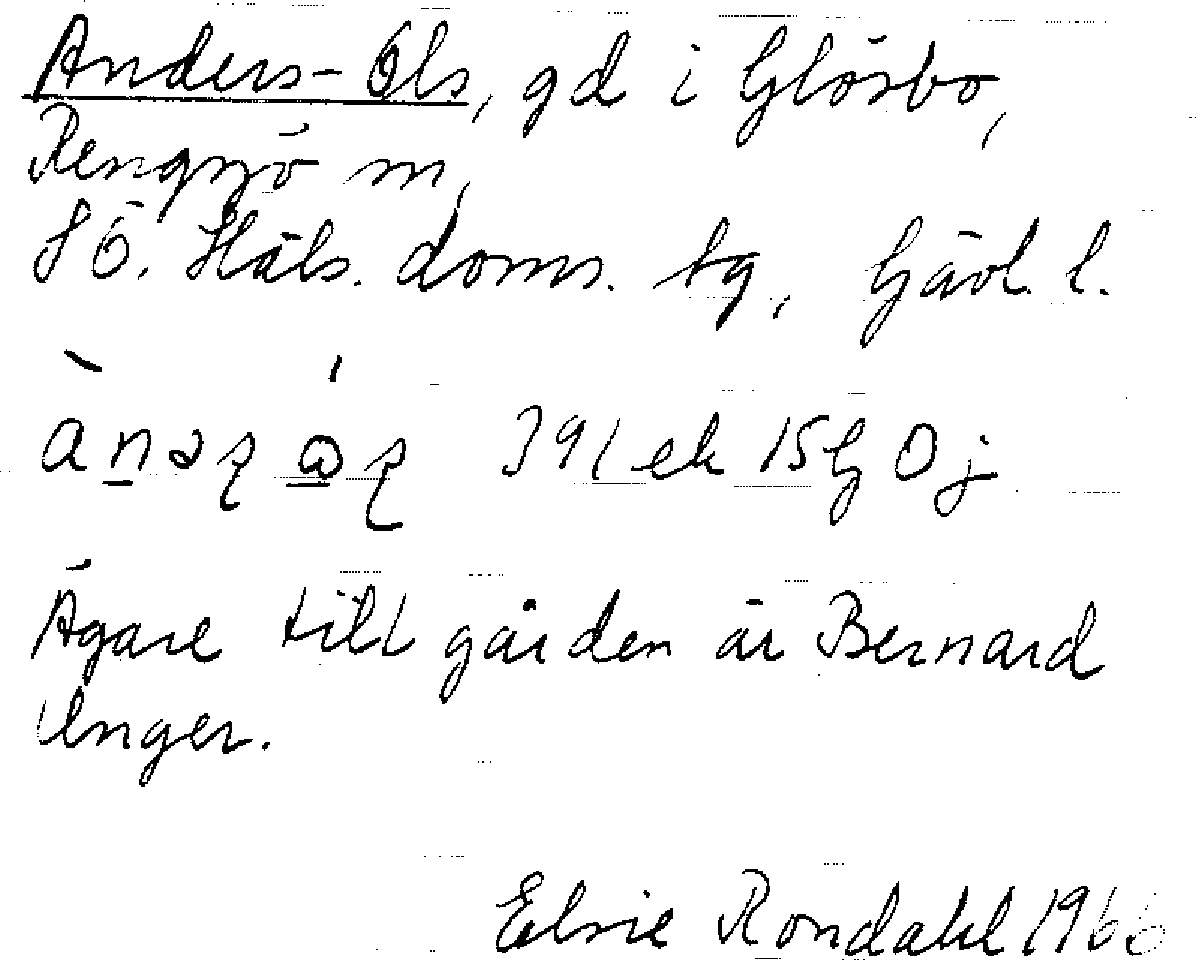 Anders-Ols, gd i Glösbo,
Rengsjö sn,
SÖ. Häls. doms. tg, Gävl. l.
391 ek 15G 0j
Ägare till gården är Bernard
Unger.
Elsie Rondahl 1966